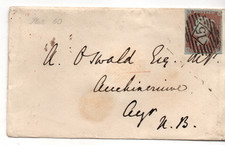 A. Oswald Esq. M.P.
Auchincruive
Ayr
N.B.